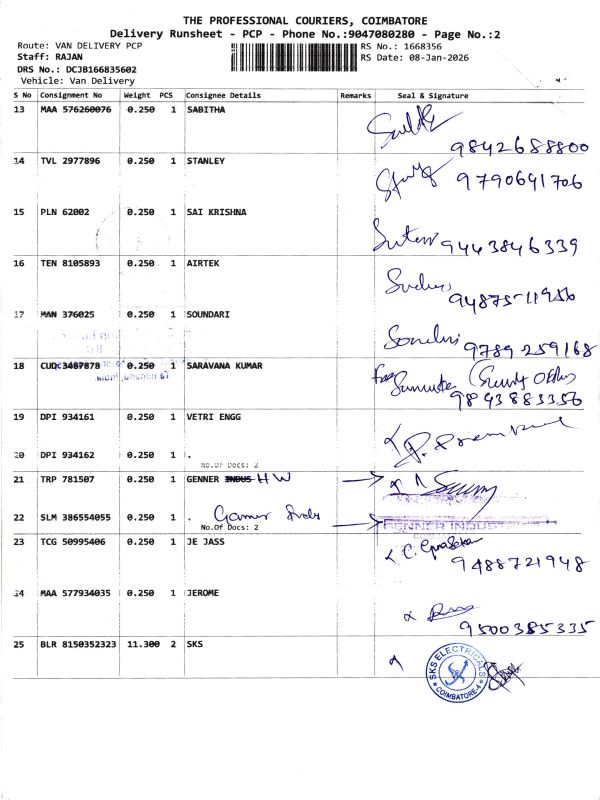 THE PROFESSIONAL COURIERS, COIMBATORE
Delivery Runsheet - PCP - Phone No.:9047080280 - Page No.:2
Route: VAN DELIVERY PCP
Staff: RAJAN
DRS No.: DCJB166835602
Vehicle: Van Delivery
RS No.: 1668356
RS Date: 08-Jan-2026
S No Consignment No Weight PCS Consignee Details Remarks Seal & Signature
13 MAA 576260076 0.250 1 SABITHA
9842688800
14 TVL 2977896 0.250 1 STANLEY
9790641706
15 PLN 62002 0.250 1 SAI KRISHNA
9443846339
16 TEN 8105893 0.250 1 AIRTEK
94875-11956
17 MAN 376025 0.250 1 SOUNDARI
9789259168
18 CUD 3487878 0.250 1 SARAVANA KUMAR
9843883356
19 DPI 934161 0.250 1 VETRI ENGG
20 DPI 934162 0.250 1 .
No.Of Docs: 2
21 TRP 781507 0.250 1 GENNER INDUS HW
22 SLM 386554055 0.250 1 .
No.Of Docs: 2
GENNER INDUST
23 TCG 50995406 0.250 1 JE JASS
9488721948
24 MAA 577934035 0.250 1 JEROME
9500385335
25 BLR 8150352323 11.300 2 SKS
SKS ELECTRICALS
COIMBATORE-4